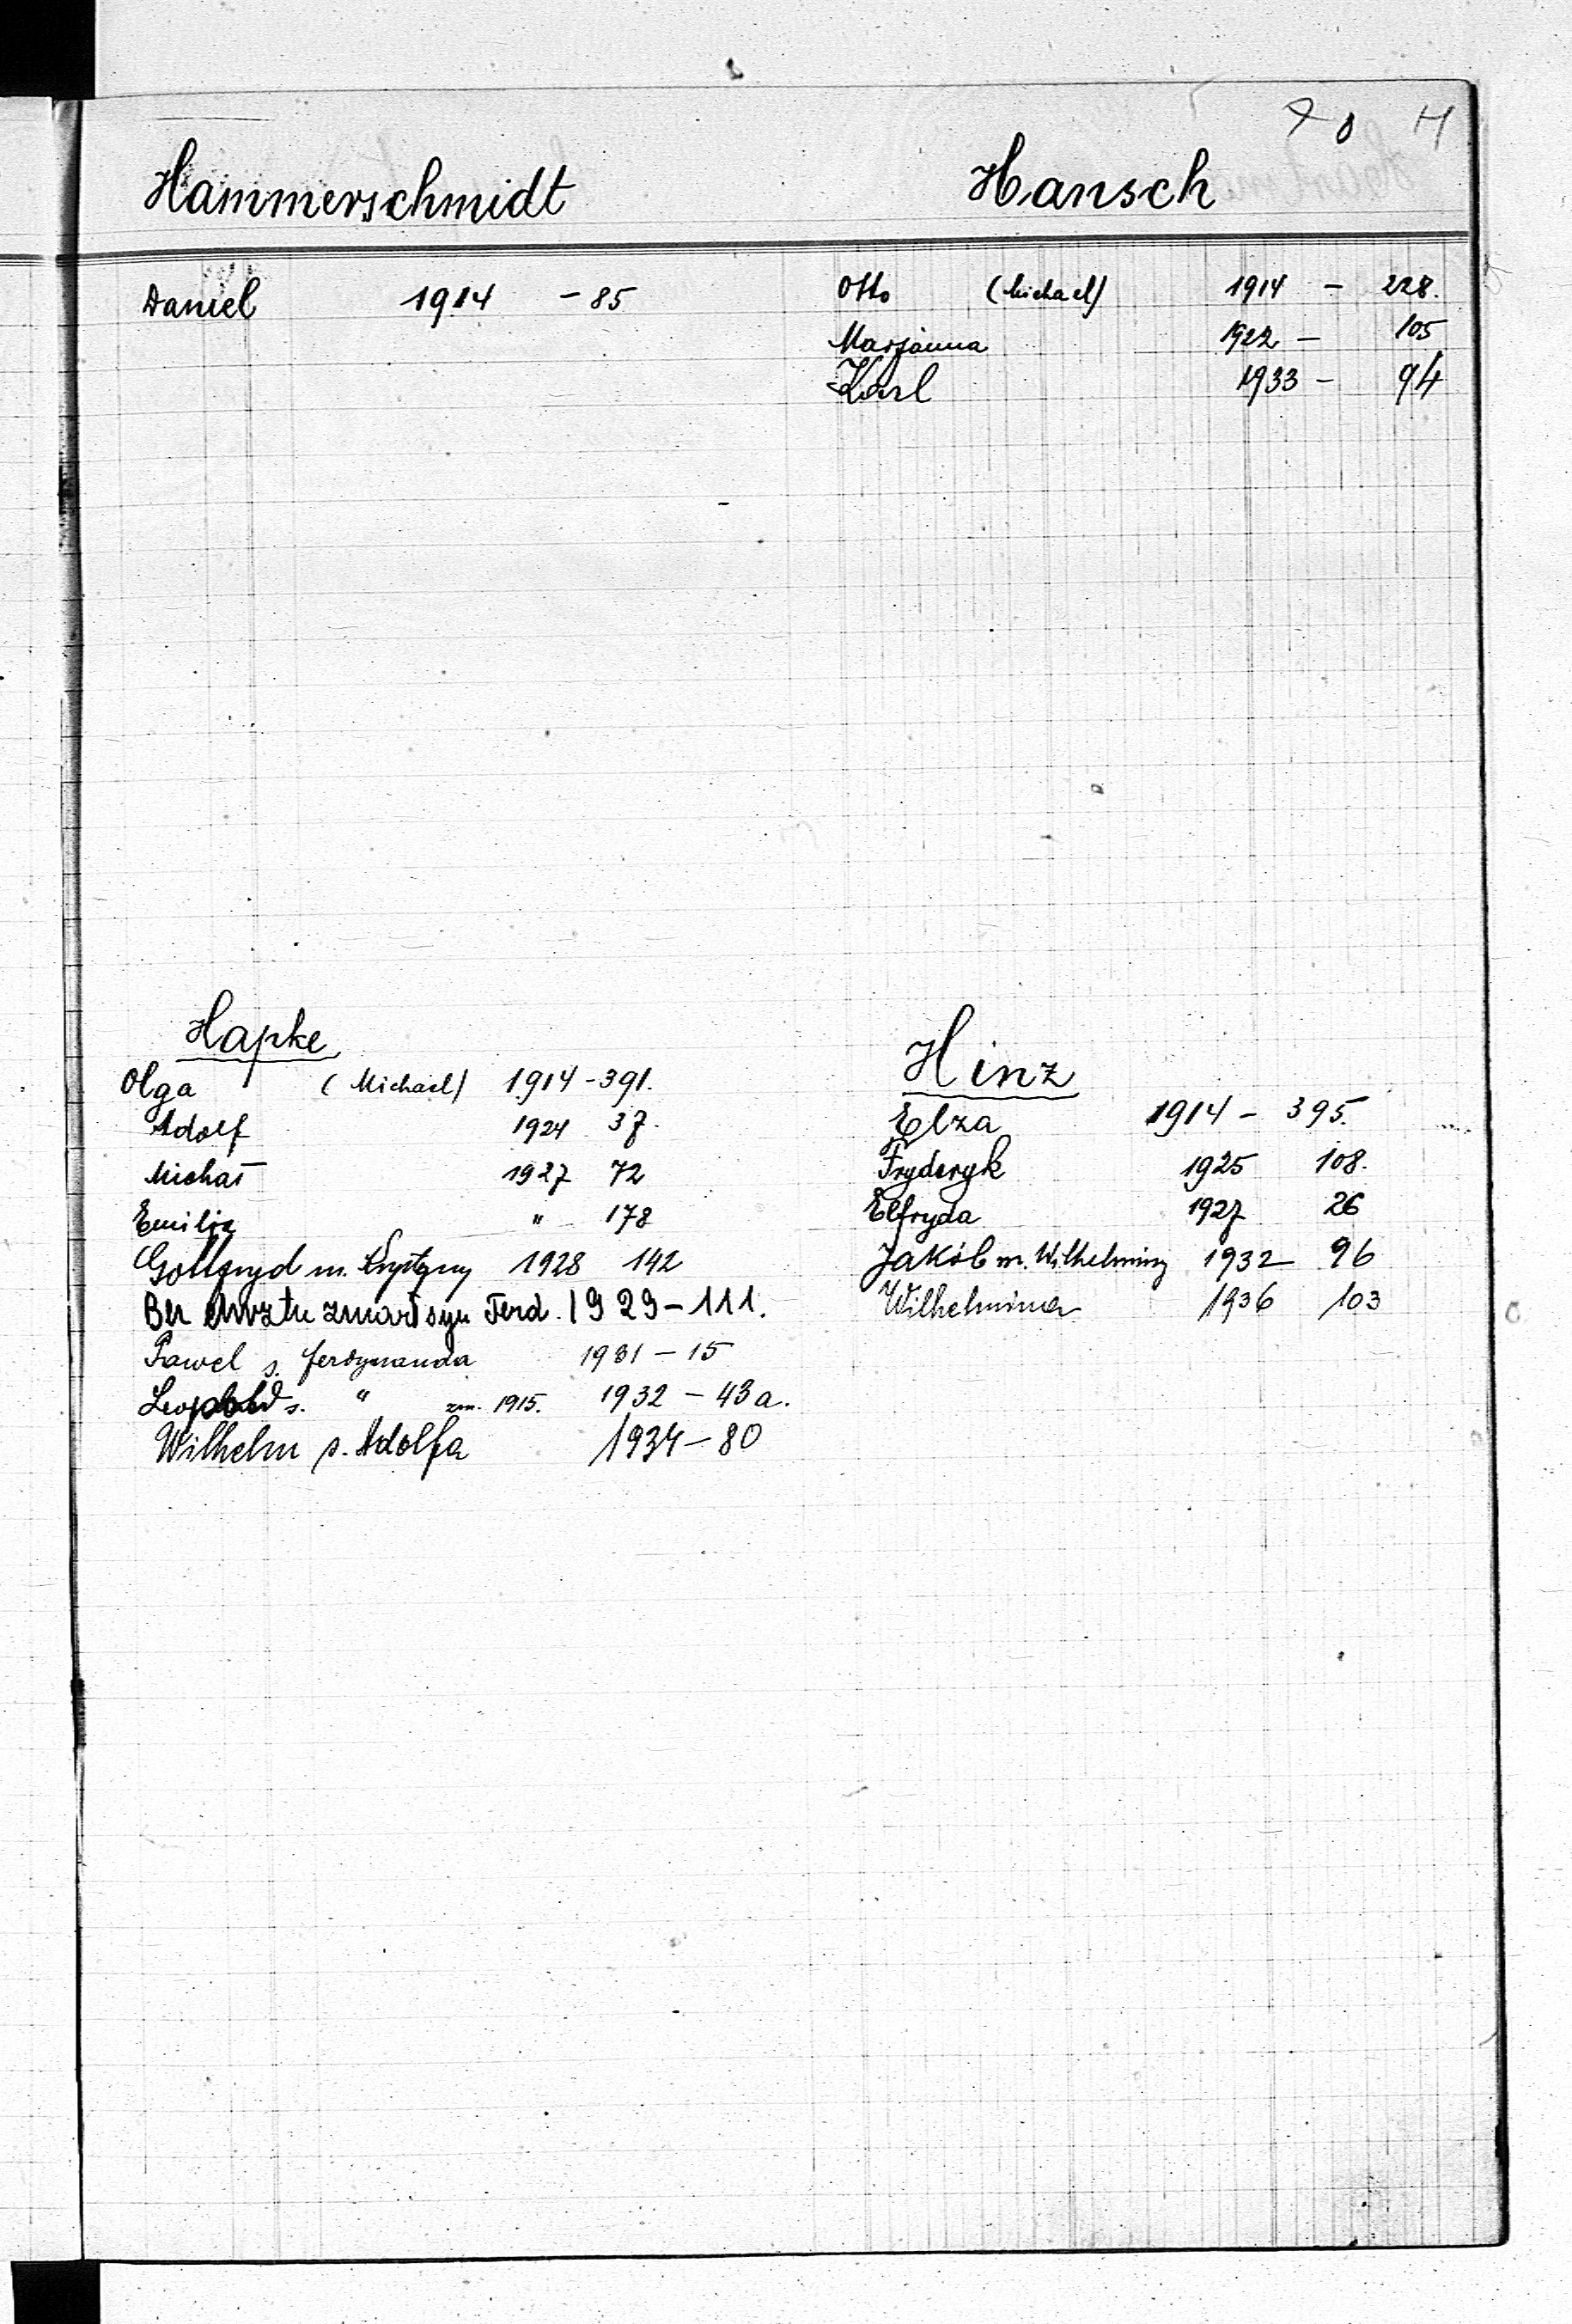 70 H
Hammerschmidt
Daniel 1914 - 85
Hansch
Otto (Michael) 1914 - 228.
Marjanna 1922 - 105
Karl 1933 - 94
Hapke
Olga (Michael) 1914 - 391.
Adolf 1924 37.
Michał 1927 72
Emilja " 178
Gottfryd m. Krystyny 1928 142
Bez chrztu zmarł syn Ferd. 1929 - 111.
Paweł s. Ferdynanda 1931 - 15
Leopold s. " zm. 1915. 1932 - 43a.
Wilhelm s. Adolfa 1934 - 80
Hinz
Elza 1914 - 395.
Fryderyk 1925 108.
Elfryda 1927 26
Jakób m. Wilhelminy 1932 96
Wilhelmina 1936 103